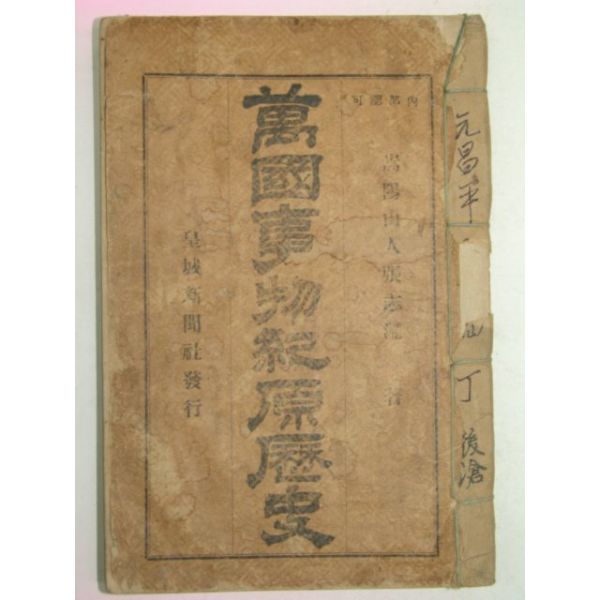 內部認可
嵩陽山人張志淵 著
萬國事物紀原歷史
皇城新聞社發行
元昌平
丁
後滄